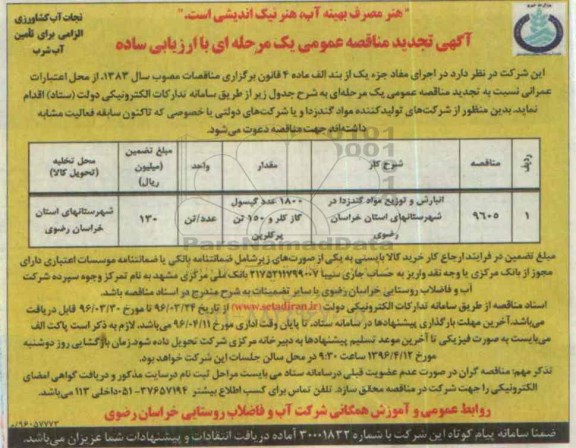 "هنر مصرف بهینه آب، هنر نیک اندیشی است."
نجات آب کشاورزی
الزامی برای تأمین
آب شرب
آگهی تجدید مناقصه عمومی یک مرحله ای با ارزیابی ساده
این شرکت در نظر دارد در اجرای مفاد جزء یک از بند الف ماده ۴ قانون برگزاری مناقصات مصوب سال ۱۳۸۳، از محل اعتبارات
عمرانی نسبت به تجدید مناقصه عمومی یک مرحله‌ای به شرح جدول زیر از طریق سامانه تدارکات الکترونیکی دولت (ستاد) اقدام
نماید. بدین منظور از شرکت‌های تولیدکننده مواد گندزدا و یا شرکت‌های دولتی یا خصوصی که تاکنون سابقه فعالیت مشابه
داشته‌اند جهت مناقصه دعوت می‌شود.
ردیف مناقصه شرح کار مقدار واحد مبلغ تضمین (میلیون ریال) محل تخلیه (تحویل کالا)
۱ ۹۶۰۵ انبارش و توزیع مواد گندزدا در شهرستانهای استان خراسان رضوی ۱۸۰۰ عدد کپسول گاز کلر و ۱۵۰ تن پرکلرین عدد/تن ۱۳۰ شهرستانهای استان خراسان رضوی
ParsNamadData
مبلغ تضمین در فرایند ارجاع کار خرید کالا بایستی به یکی از صورت‌های زیر شامل ضمانتنامه بانکی یا ضمانتنامه موسسات اعتباری دارای
مجوز از بانک مرکزی یا وجه نقد واریز به حساب جاری سیبا ۲۱۷۵۲۱۱۷۹۹۰۰۷ بانک ملی مرکزی مشهد به نام تمرکز وجوه سپرده شرکت
آب و فاضلاب روستایی خراسان رضوی یا سایر تضمینات به شرح مندرج در اسناد مناقصه باشد.
اسناد مناقصه از طریق سامانه تدارکات الکترونیکی دولت (www.setadiran.ir) از تاریخ ۹۶/۰۳/۲۴ تا مورخ ۹۶/۰۳/۳۰ قابل دریافت
می‌باشد. آخرین مهلت بارگذاری پیشنهادها در سامانه ستاد، تا پایان وقت اداری مورخ ۹۶/۰۴/۱۱ می‌باشد. لازم به ذکر است پاکت الف
می‌بایست به صورت فیزیکی تا آخرین موعد تسلیم پیشنهادها به دبیرخانه مرکزی شرکت تحویل داده شود. زمان بازگشایی روز دوشنبه
مورخ ۱۳۹۶/۴/۱۲ ساعت ۹:۳۰ در محل سالن جلسات این شرکت خواهد بود.
تذکر مهم: مناقصه گران در صورت عدم عضویت قبلی در سامانه ستاد می بایست مراحل ثبت نام در سایت مذکور و دریافت گواهی امضای
الکترونیکی را جهت شرکت در مناقصه محقق سازد. تلفن تماس برای کسب اطلاع بیشتر ۳۷۶۵۷۱۹۴-۰۵۱ داخلی ۱۱۳ می‌باشد.
روابط عمومی و آموزش همگانی شرکت آب و فاضلاب روستایی خراسان رضوی
۹۶۰۵۷۷۷۳
ضمنا سامانه پیام کوتاه این شرکت با شماره ۳۰۰۰۱۸۳۲ آماده دریافت انتقادات و پیشنهادات شما عزیزان می‌باشد.